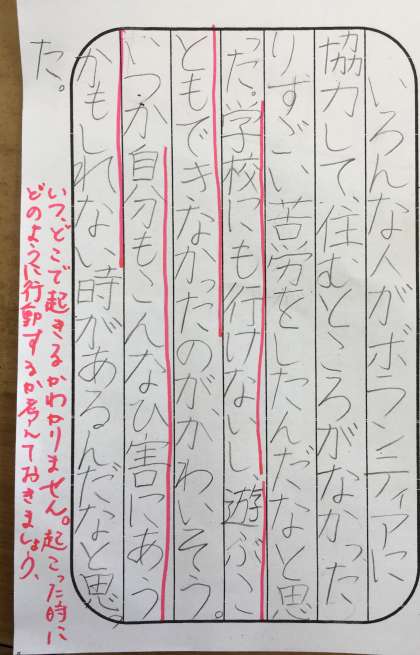 いろんな人がボランティアに
協力して、住むところがなかった
りすごい苦労をしたんだなと思
った。学校にも行けないし、遊ぶこ
ともできなかったのが、かわいそう。
いつか自分もこんなひ害にあう
かもしれない時があるんだなと思っ
た。
いつ、どこで起きるかわかりません。起こった時に
どのように行動するか考えておきましょう。